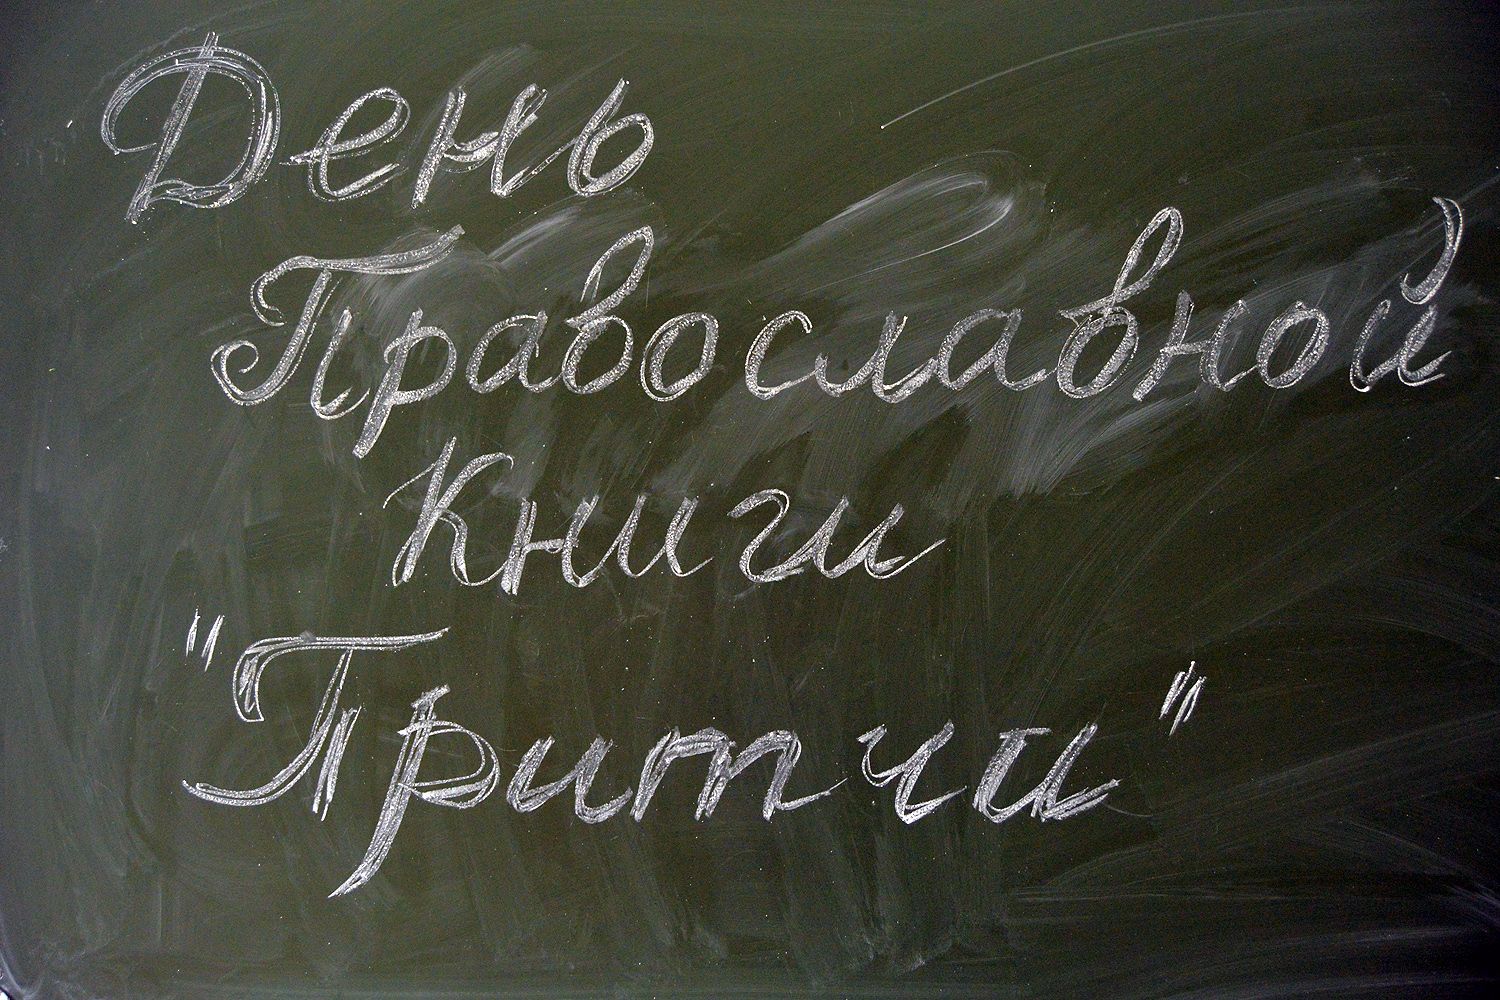 День
Православной
Книги
"Притчи"